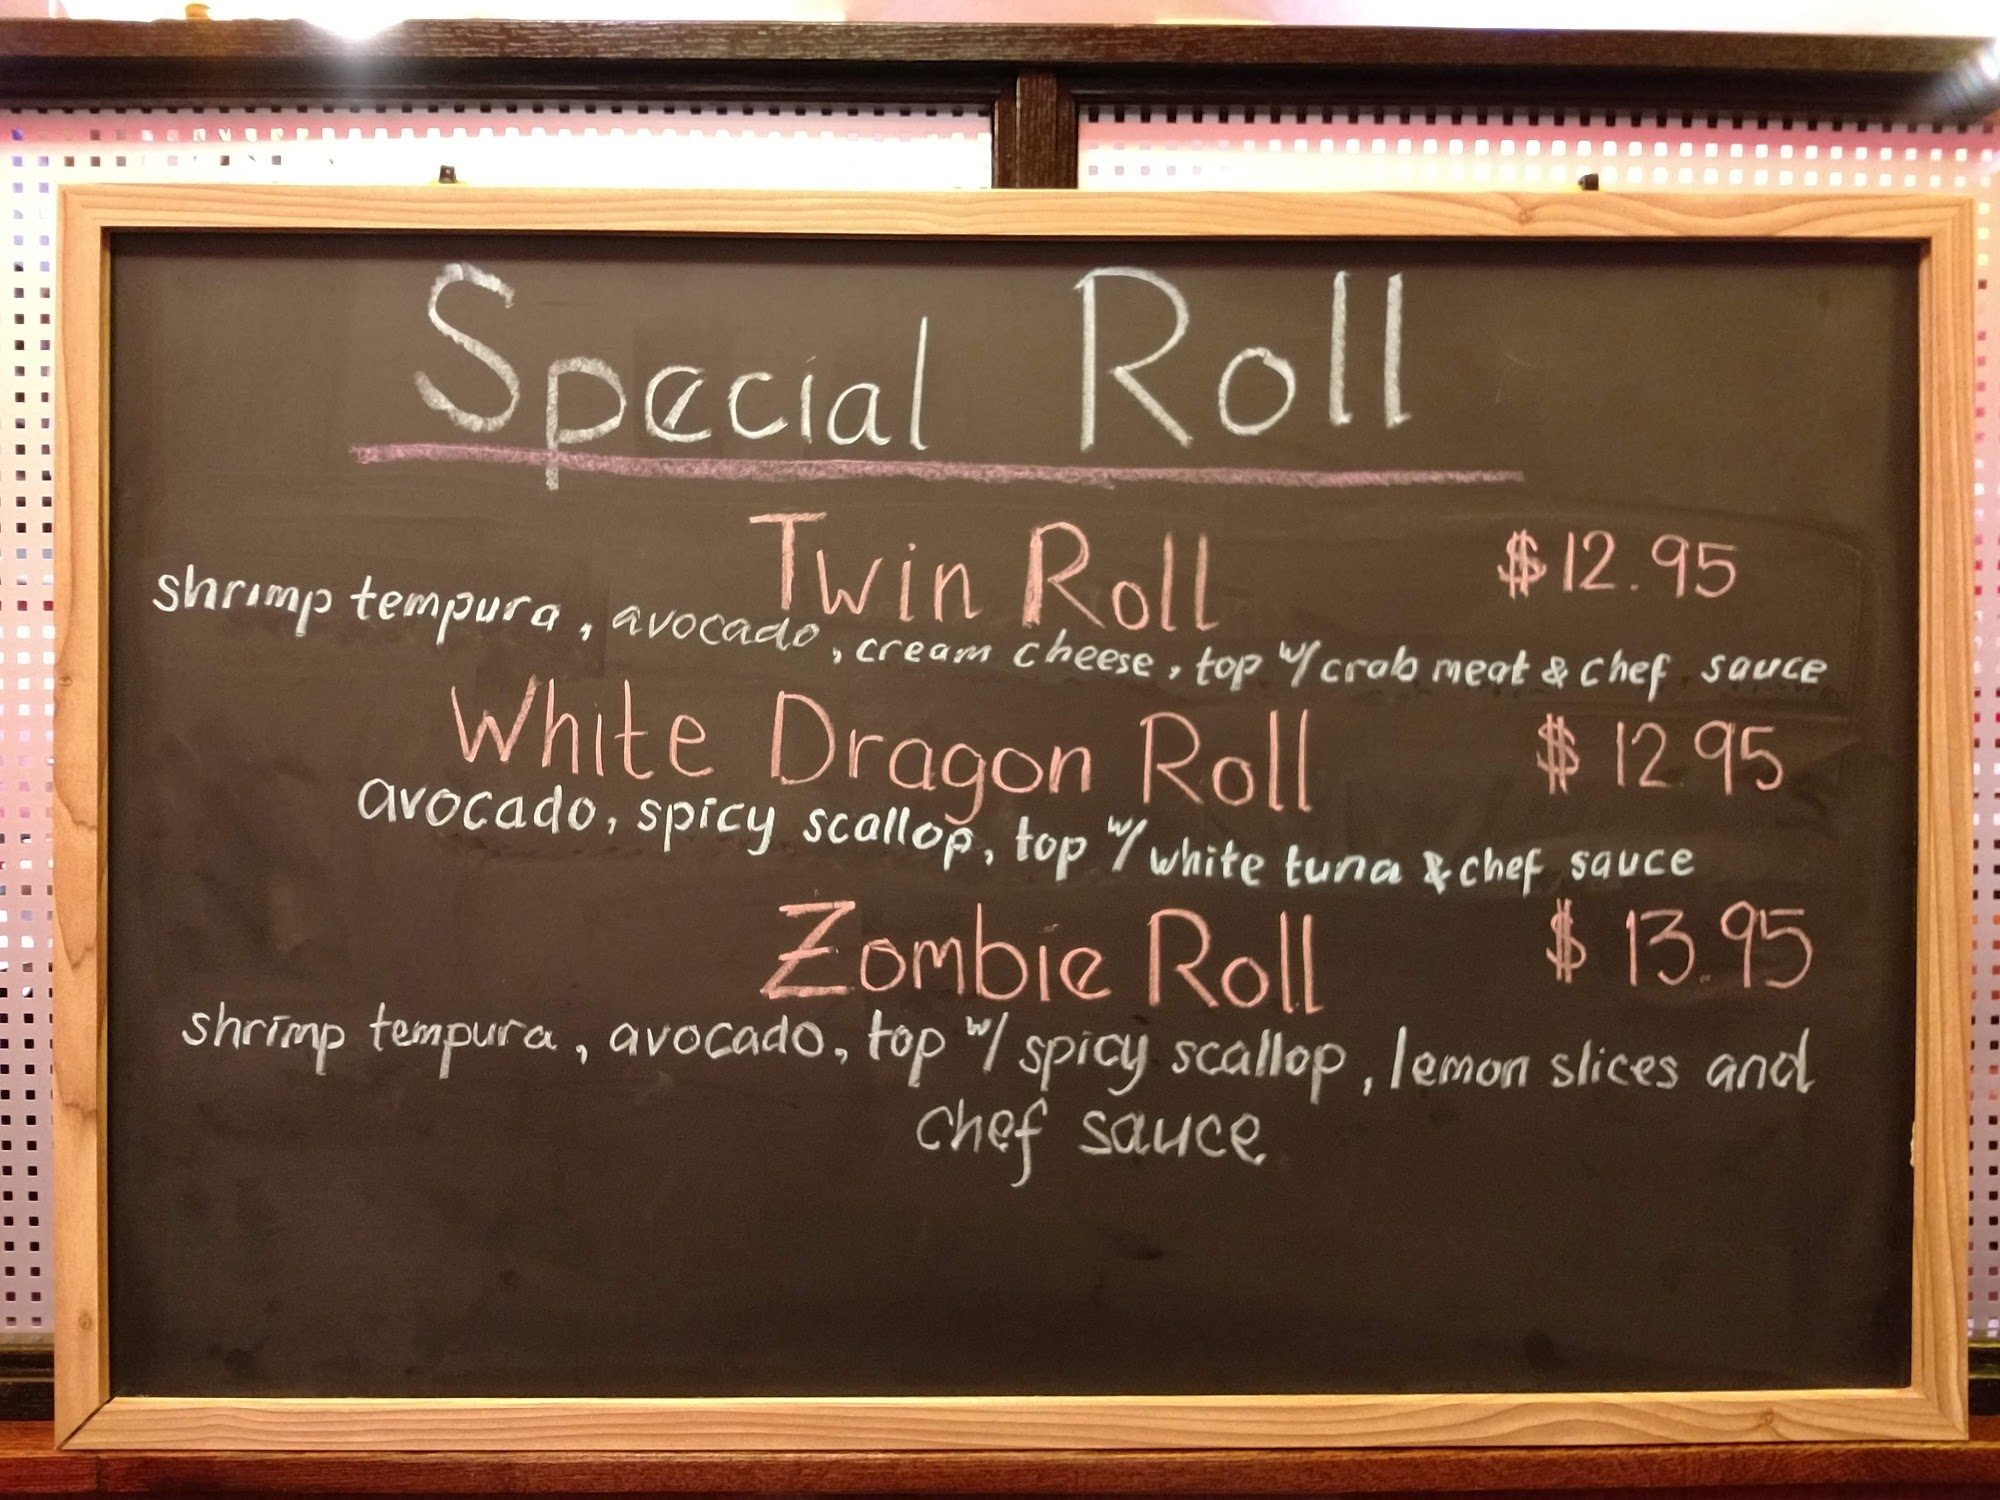 Special Roll
Twin Roll $12.95
shrimp tempura, avocado, cream cheese, top w/ crab meat & chef sauce
White Dragon Roll $12.95
avocado, spicy scallop, top w/ white tuna & chef sauce
Zombie Roll $13.95
shrimp tempura, avocado, top w/ spicy scallop, lemon slices and
chef sauce